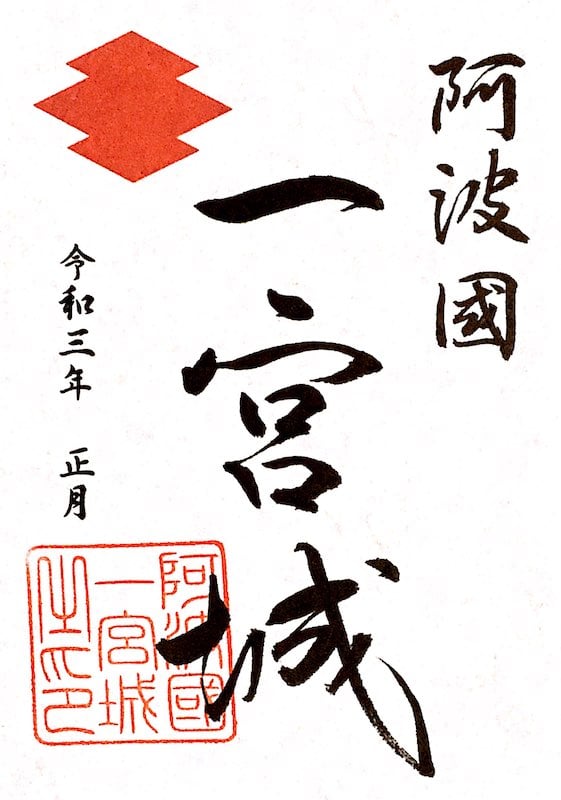 阿波國
一宮城
令和三年 正月
阿波國
一宮城
之印